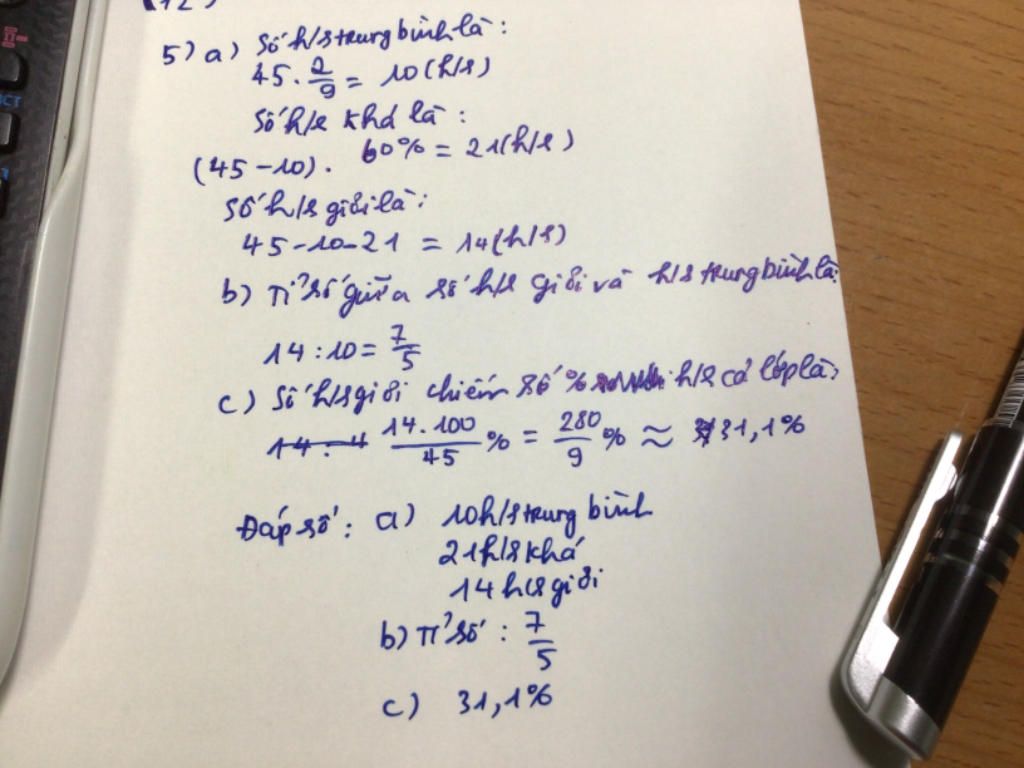 5) a) Số h/s trung bình là:
45 . 2/9 = 10 (h/s)
Số h/s khá là:
(45 - 10) . 60% = 21 (h/s)
Số h/s giỏi là:
45 - 10 - 21 = 14 (h/s)
b) Tỉ số giữa số h/s giỏi và h/s trung bình là:
14 : 10 = 7/5
c) Số h/s giỏi chiếm số % h/s cả lớp là:
14 : 4 14 . 100/45 % = 280/9 % ≈ 31,1%
Đáp số: a) 10 h/s trung bình
21 h/s khá
14 h/s giỏi
b) Tỉ số: 7/5
c) 31,1%